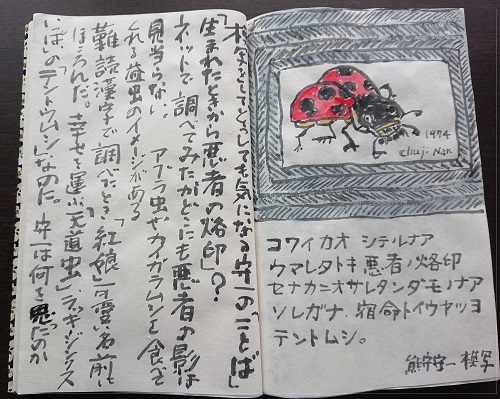 模写をしてどうしても気になる守一の「ことば」
「生まれたときから悪者の烙印」?
ネットで調べてみたがどこにも悪者の影は
見当らない。アブラ虫やカイガラムシを食べて
くれる益虫のイメージがある
難読漢字で調べたとき「紅娘」の雲い名前に
ほころんだ。幸せを運ぶ「天道虫」、ラッキーシックス
いぼの「テントウムシ」なのだ。守一は何を思ったのか
1974
Chuji-Nak
コワイカオ シテルナア
ウマレタトキ 悪者ノ烙印
セナカニオサレタンダモノナア
ソレガナ、宿命トイウヤツヨ
テントムシ。
熊守守一 模写